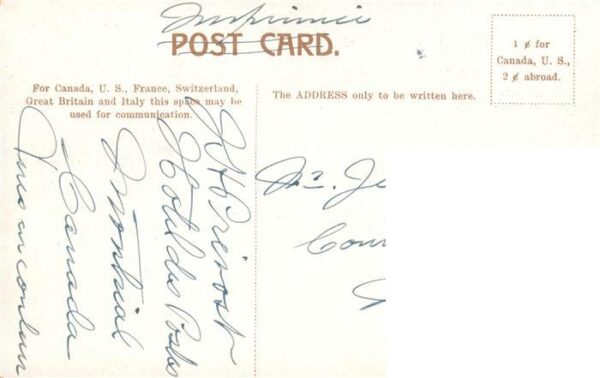 Imprimée
POST CARD.
1 ¢ for
Canada, U. S.,
2 ¢ abroad.
For Canada, U. S., France, Switzerland,
Great Britain and Italy this space may be
used for communication.
The ADDRESS only to be written here.
J H Prevost
Hotel des Postes
Montréal
Canada
Vues en couleur